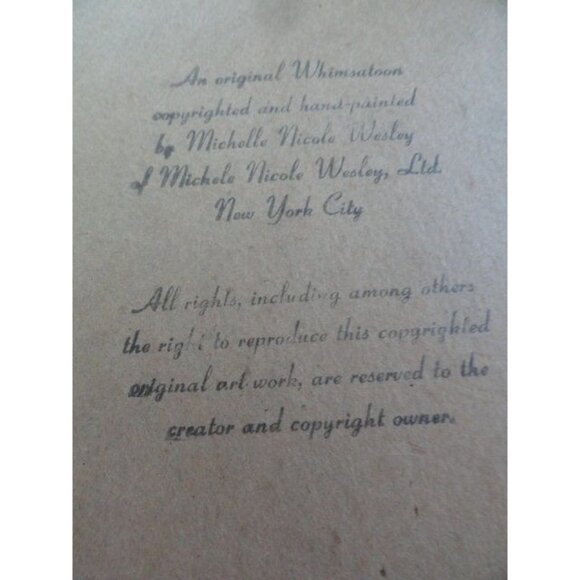 An original Whimsatoon
copyrighted and hand-painted
by Michelle Nicole Wesley
of Michele Nicole Wesley, Ltd.
New York City
All rights, including among others
the right to reproduce this copyrighted
original art work, are reserved to the
creator and copyright owner.